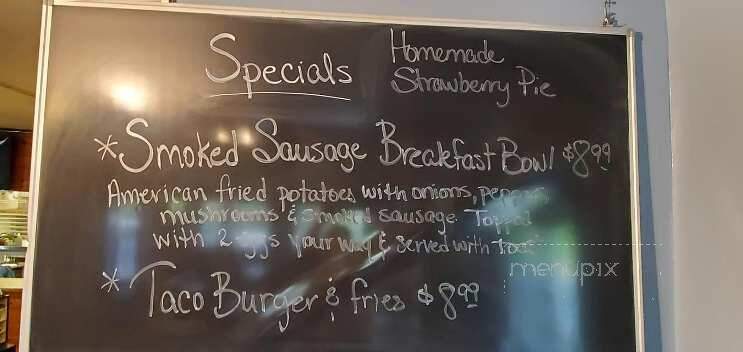 Specials
Homemade
Strawberry Pie
*Smoked Sausage Breakfast Bowl $8.99
American fried potatoes with onions, peppers
mushrooms & smoked sausage. Topped
with 2 eggs your way & served with toast
menupix
* Taco Burger & fries $8.99